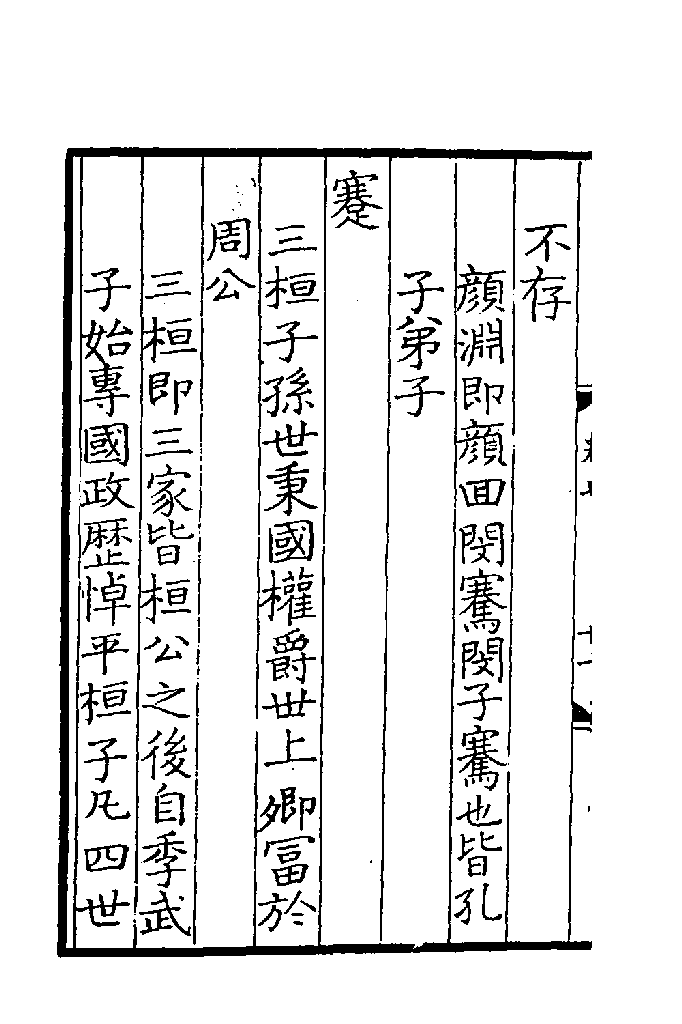 不存
顔淵即顔回閔騫閔子騫也皆孔
子弟子
蹇
三桓子孫世秉國權爵世上卿冨於
周公
三桓即三家皆桓公之後自季武
子始專國政歴悼平桓子凡四世